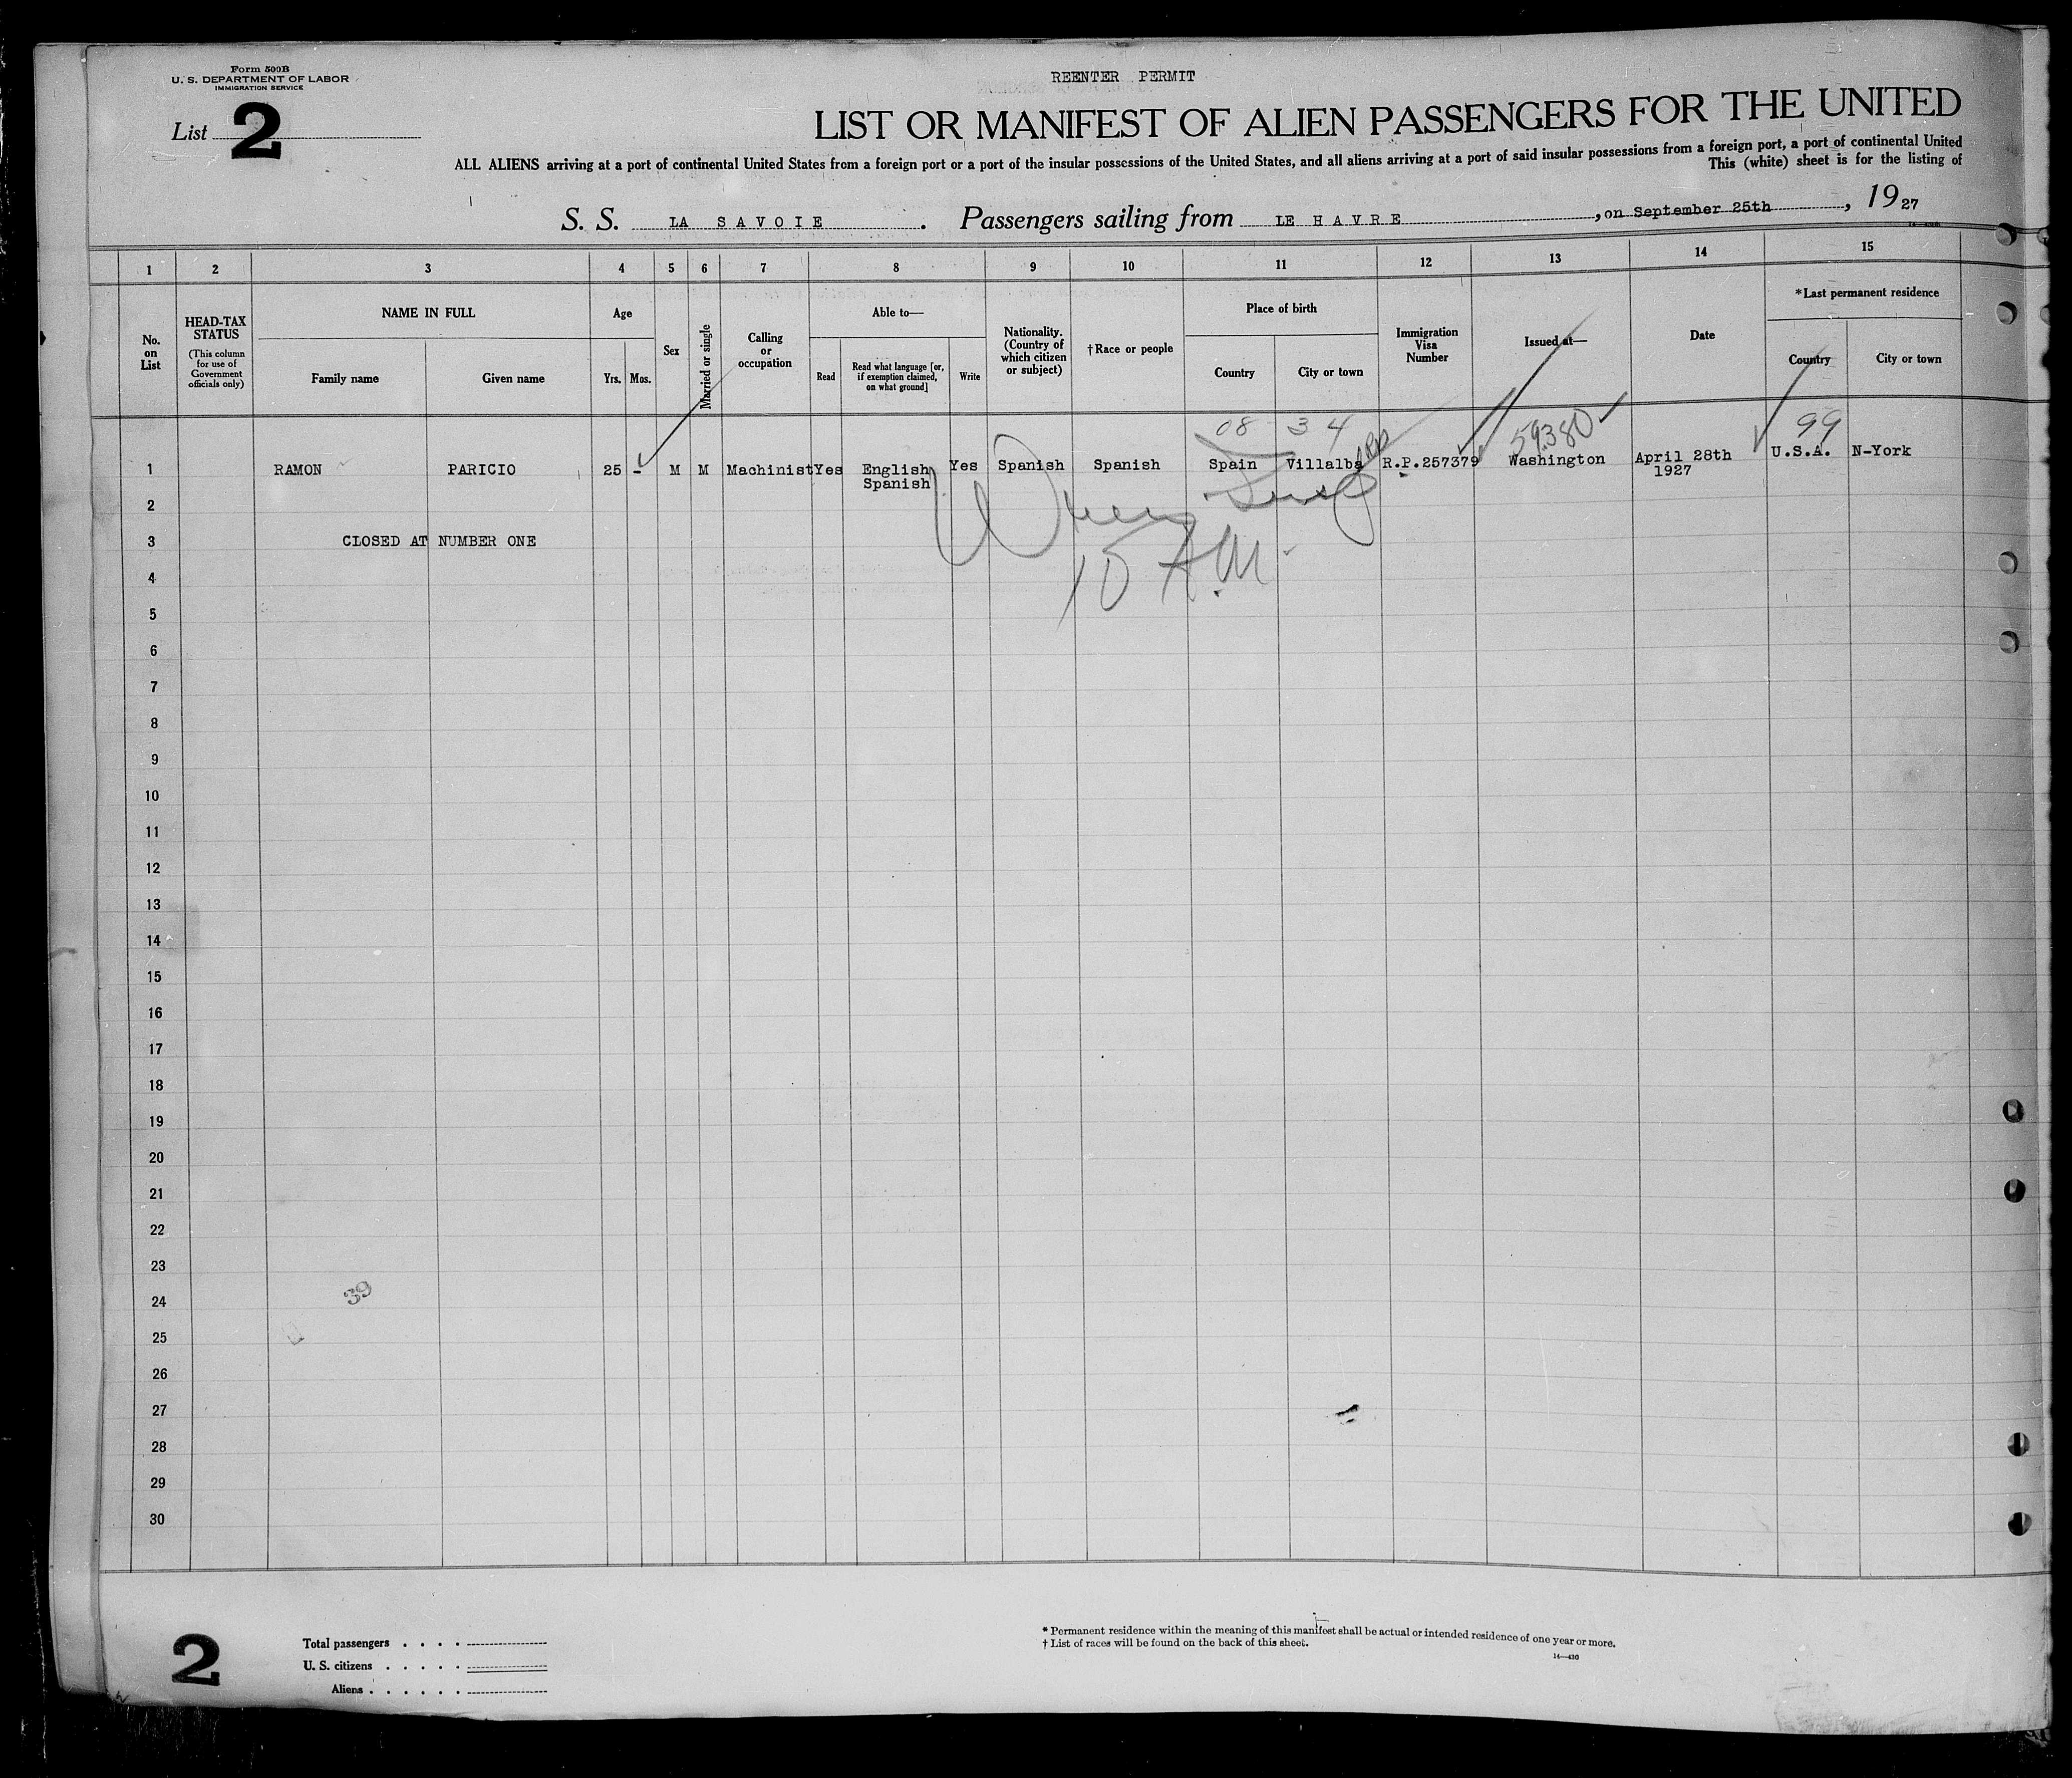 Form 500B
U. S. DEPARTMENT OF LABOR
IMMIGRATION SERVICE
REENTER PERMIT
List 2
LIST OR MANIFEST OF ALIEN PASSENGERS FOR THE UNITED
ALL ALIENS arriving at a port of continental United States from a foreign port or a port of the insular possessions of the United States, and all aliens arriving at a port of said insular possessions from a foreign port, a port of continental United
This (white) sheet is for the listing of
S. S. LA SAVOIE . Passengers sailing from LE HAVRE , on September 25th , 1927
1 2 3 4 5 6 7 8 9 10 11 12 13 14 15
No. on List
HEAD-TAX STATUS
(This column for use of Government officials only)
NAME IN FULL
Family name
Given name
Age
Yrs.
Mos.
Sex
Married or single
Calling or occupation
Able to—
Read
Read what language [or, if exemption claimed, on what ground]
Write
Nationality. (Country of which citizen or subject)
†Race or people
Place of birth
Country
City or town
Immigration Visa Number
Issued at—
Date
*Last permanent residence
Country
City or town
08 34 59380 99
1 RAMON PARICIO 25 - M M Machinist Yes English Yes Spanish Spanish Spain Villalba R.P.257379 Washington April 28th U.S.A. N-York
Spanish 1927
2
3 CLOSED AT NUMBER ONE
10 A.M.
4
5
6
7
8
9
10
11
12
13
14
15
16
17
18
19
20
21
22
23
24
39
25
26
27
28
29
30
2
Total passengers . . . .
U. S. citizens . . . . .
Aliens . . . . . .
* Permanent residence within the meaning of this manifest shall be actual or intended residence of one year or more.
† List of races will be found on the back of this sheet.
14—430